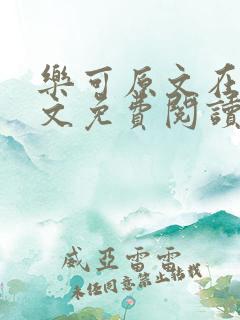 樂可原文在
文免費閱讀
威亞雷雷
未经同意禁止转载